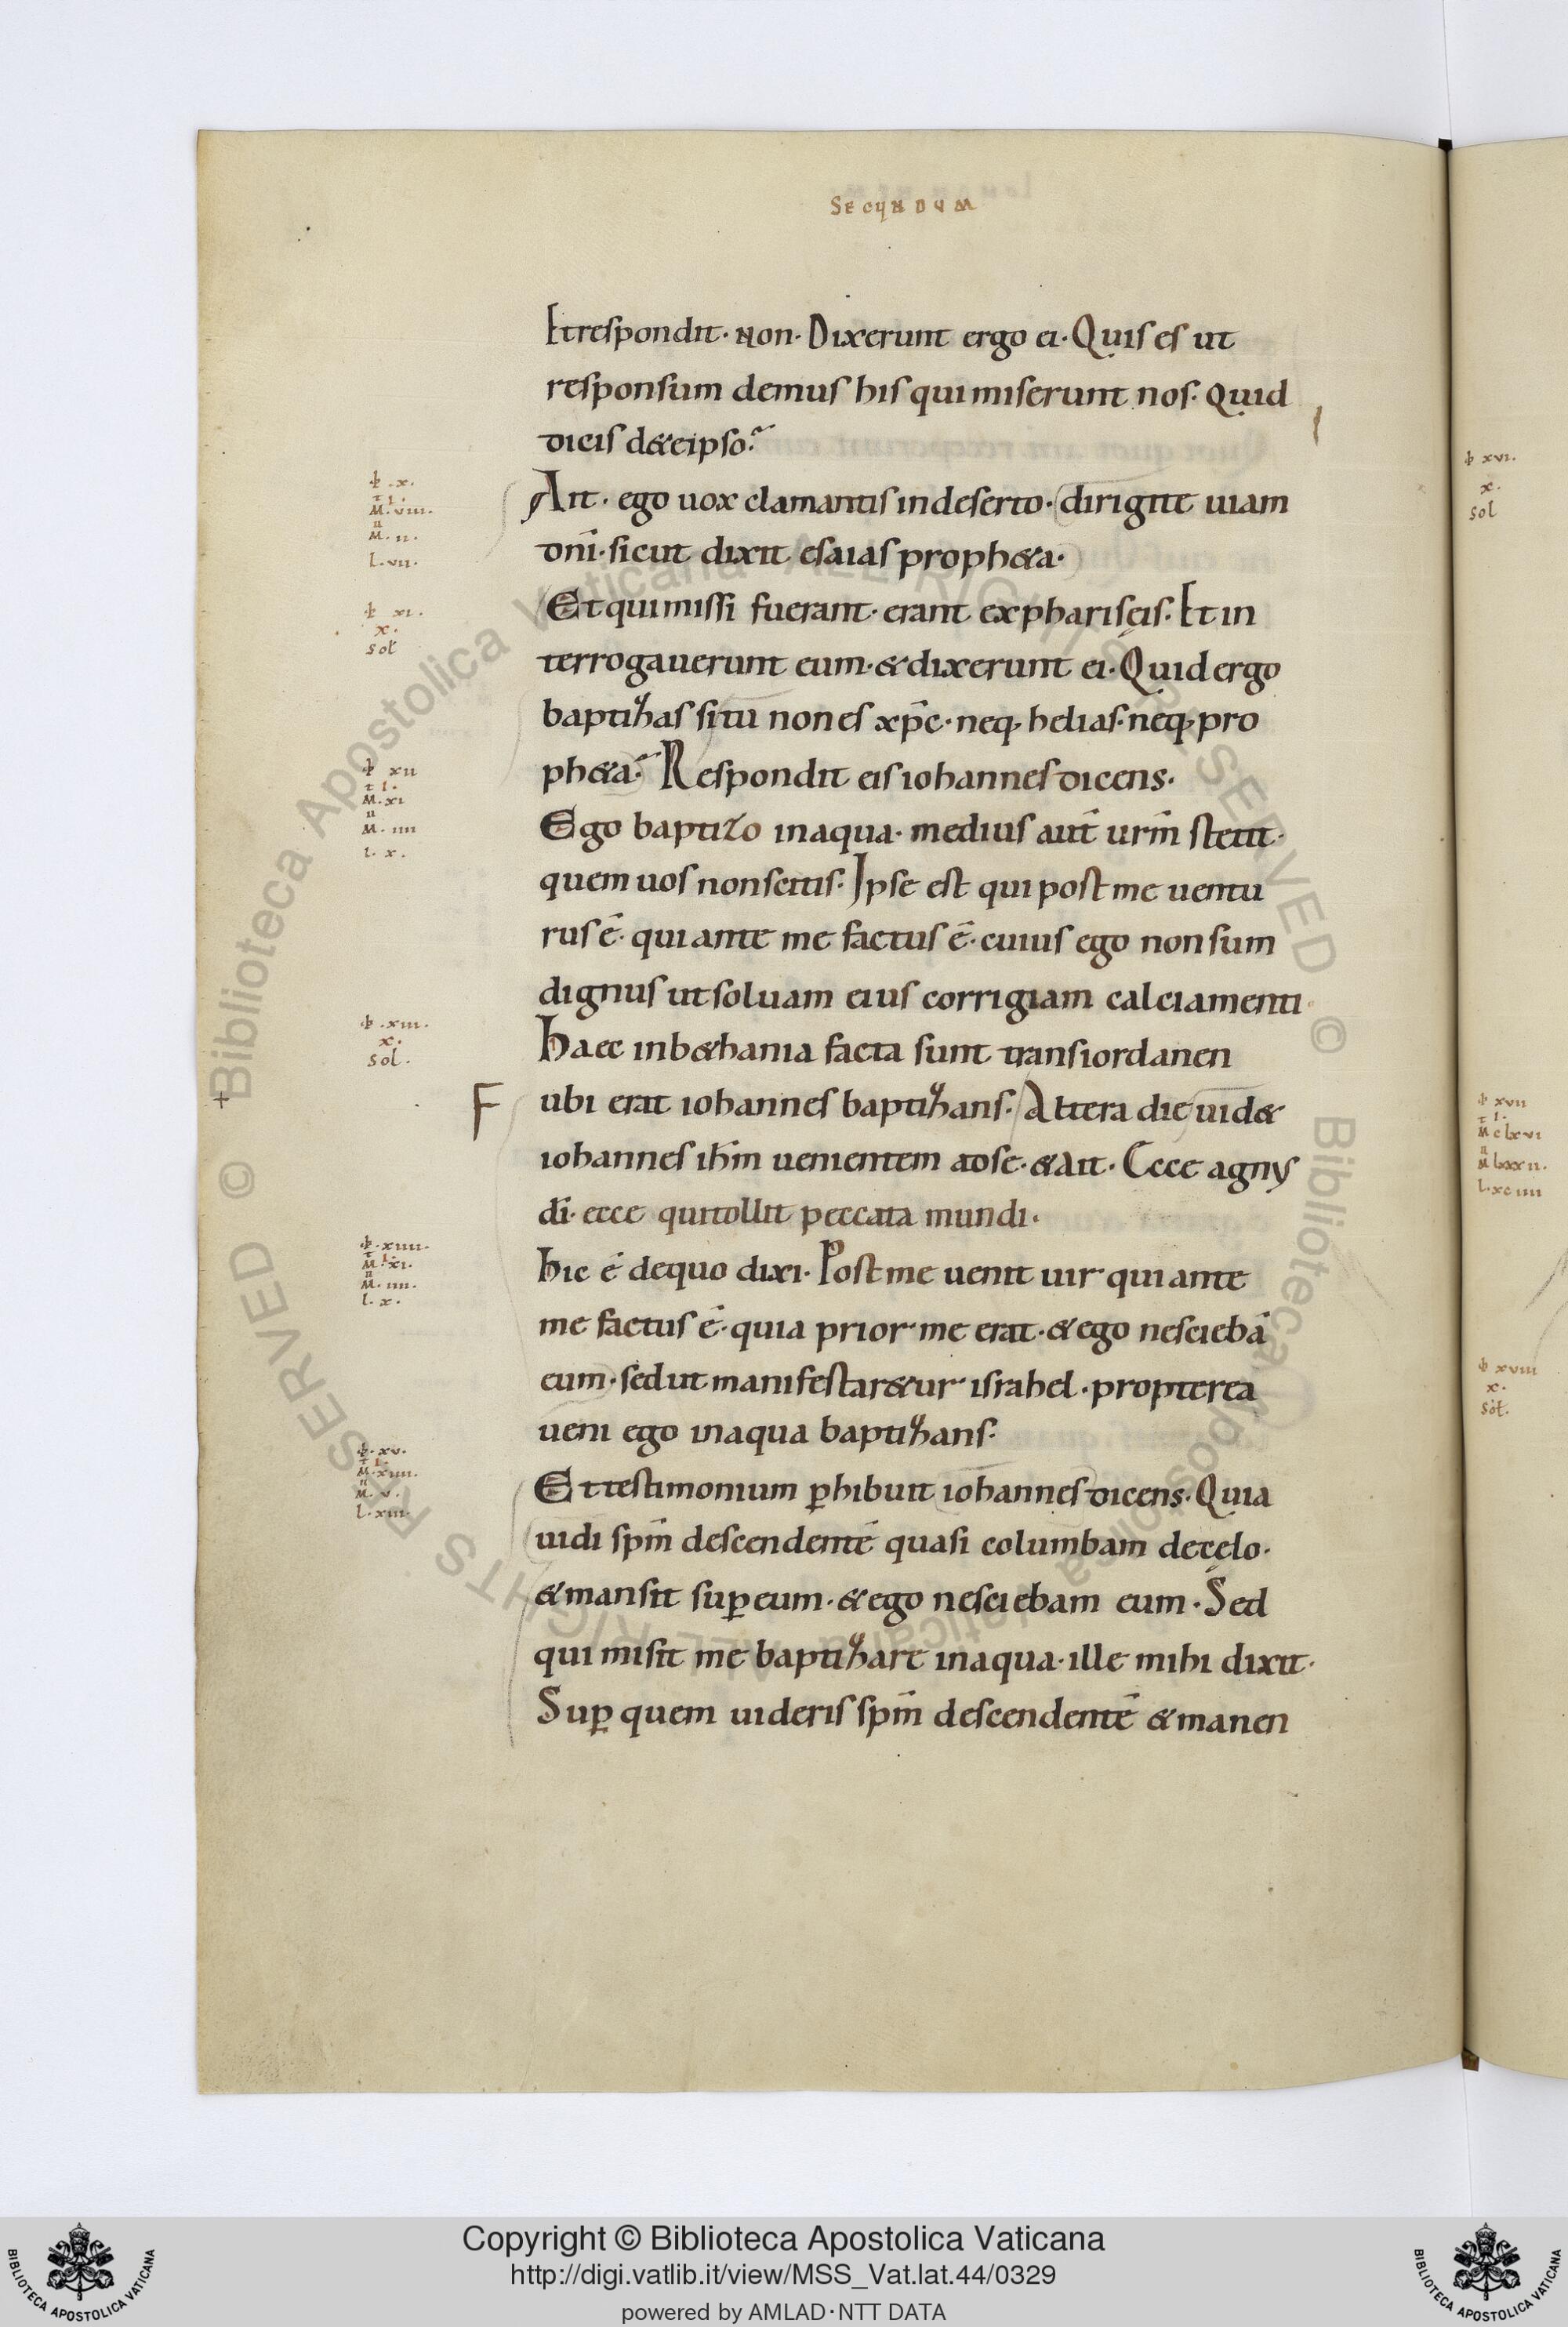 SECUNDUM
Et respondit· Non· Dixerunt ergo ei· Quis es ut
responsum demus his qui miserunt nos· Quid
dicis d&eipso?
Ait· ego uox clamantis in deserto· dirigite uiam
dnī· sicut dixit esaias proph&a·
Et qui missi fuerant· erant ex pharisęis· Et in
terrogauerunt eum· & dixerunt ei· Quid ergo
baptizas si tu non es xp̄c· neq; helias· neq; pro
ph&a? Respondit eis iohannes dicens·
Ego baptizo in aqua· medius aut̄ urm̄ stetit·
quem uos non scitis· Ipse est qui post me uentu
rus ē· qui ante me factus ē· cuius ego non sum
dignus ut soluam eius corrigiam calciamenti·
Haec in b&hania facta sunt trans iordanen
F ubi erat iohannes baptizans· Altera die uid&
iohannes ih̄m uenientem ad se· & ait· Ecce agnus
dī· ecce qui tollit peccata mundi·
Hic ē de quo dixi· Post me uenit uir qui ante
me factus ē· quia prior me erat· & ego nesciebā
eum· sed ut manifestar&ur israhel· propterea
ueni ego in aqua baptizans·
Et testimonium ꝑhibuit iohannes dicens· Quia
uidi spm̄ descendentē quasi columbam de cęlo·
& mansit suꝑ eum· & ego nesciebam eum· Sed
qui misit me baptizare in aqua· ille mihi dixit·
Suꝑ quem uideris spm̄ descendentē & manen
·x·
M·viii·
M·ii·
l·vii·
xi·
x·
sol
xii
M·xi
M·iiii
l·x·
·xiii·
x·
sol·
·xiiii·
M·xi·
M·iiii·
l·x·
·xv·
M·xiiii·
M·v·
l·xiii·
xvi·
x·
sol
xvii
M clxvi
M lxxxii·
l·xciiii
xviii
x·
sol·
© Biblioteca Apostolica Vaticana ALL RIGHTS RESERVED © Biblioteca Apostolica Vaticana ALL RIGHTS RESERVED
Copyright © Biblioteca Apostolica Vaticana
http://digi.vatlib.it/view/MSS_Vat.lat.44/0329
powered by AMLAD·NTT DATA
BIBLIOTECA APOSTOLICA VATICANA
BIBLIOTECA APOSTOLICA VATICANA